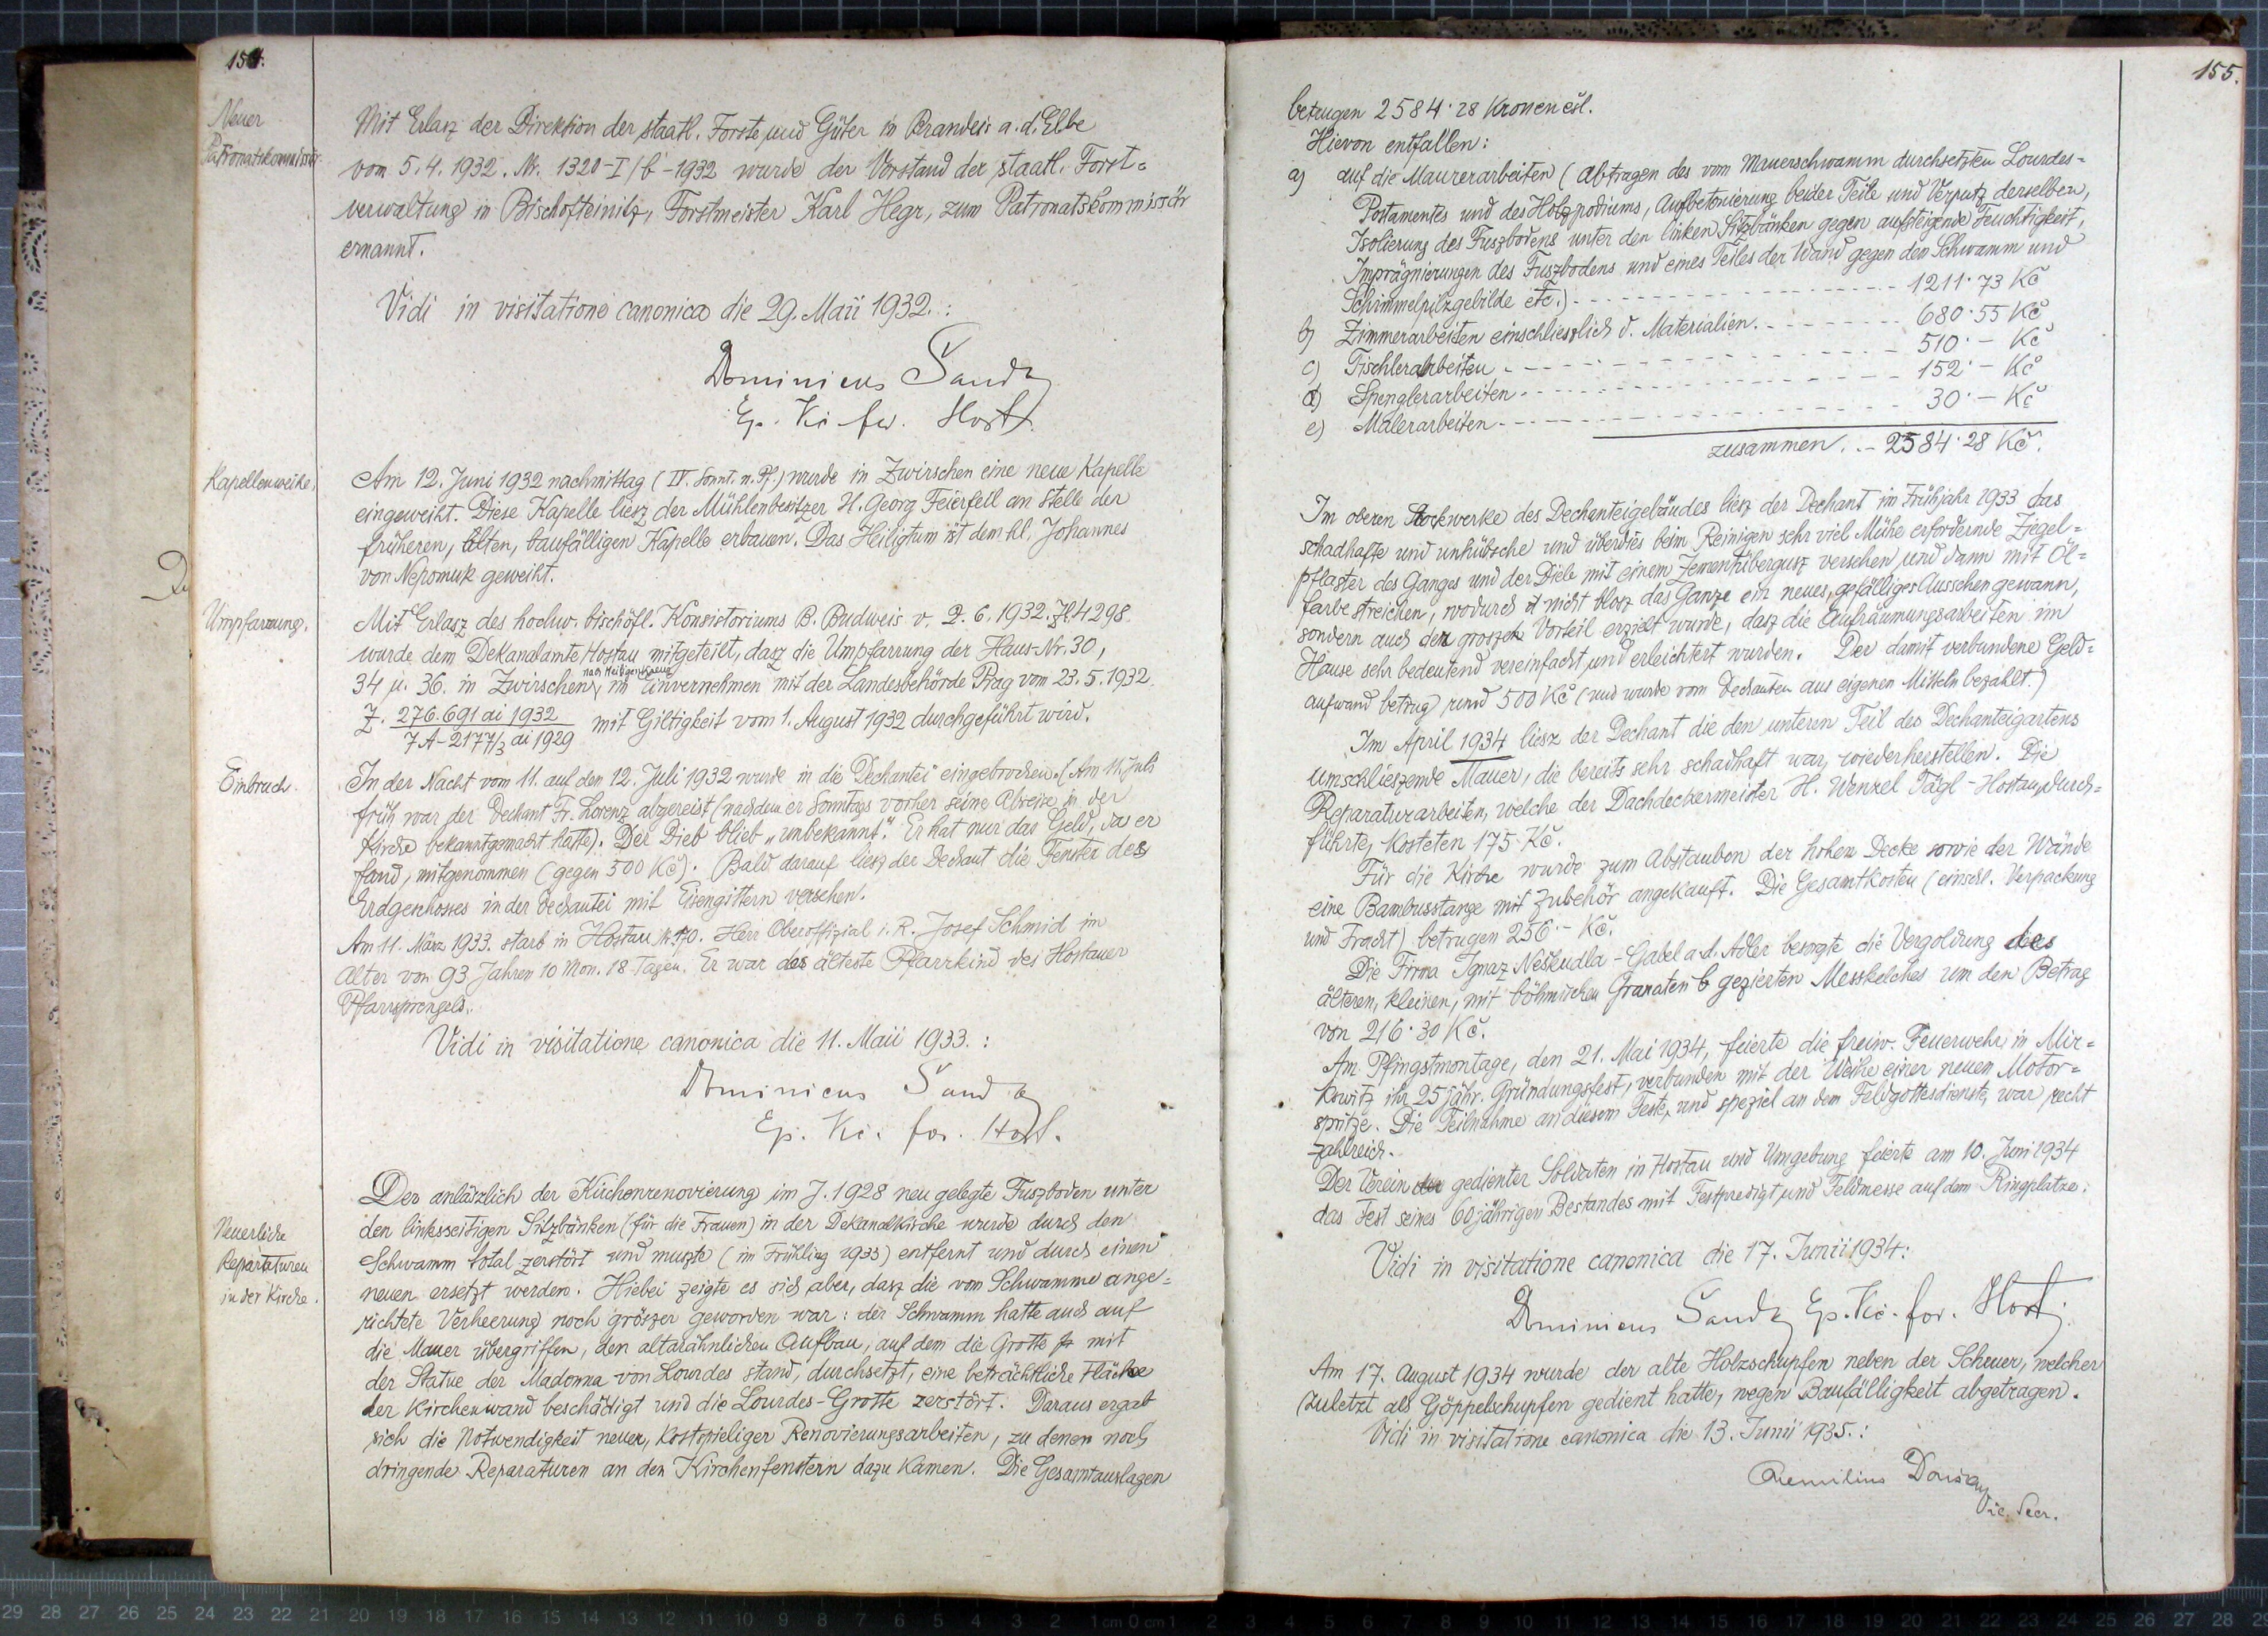 154.
Neuer
Patronatskommissär.
Mit Erlasz der Direktion der staatl. Forste und Güter in Brandeis a.d. Elbe
vom 5.4.1932. Nr. 1320-I/b-1932 wurde der Vorstand der staatl. Forst=
verwaltung in Bischofteinitz, Forstmeister Karl Hegr, zum Patronatskommissär
ernannt.
Vidi in visitatione canonica die 29. Maii 1932.:
Dominicus Sandy
Ep. Vic. for. Host.
Kapellenweihe.
Am 12. Juni 1932 nachmittag (IV. Sonnt. n. Pf.) wurde in Zwirschen eine neue Kapelle
eingeweiht. Diese Kapelle liesz der Mühlenbesitzer H. Georg Feierfeil an Stelle der
früheren, alten, baufälligen Kapelle erbauen. Das Heiligtum ist dem hl. Johannes
von Nepomuk geweiht.
Umpfarrung.
Mit Erlasz des hochw. bischöfl. Konsistoriums B. Budweis v. 2.6.1932. Zl. 4298.
wurde dem Dekanalamte Hostau mitgeteilt, dasz die Umpfarrung der Haus-Nr. 30,
34 u. 36. in Zwirschen nach Heiligenkreuz, im Einvernehmen mit der Landesbehörde Prag vom 23.5.1932.
Z. 276.691 ai 1932 / 7A-2177/3 ai 1929 mit Giltigkeit vom 1. August 1932 durchgeführt wird.
Einbruch.
In der Nacht vom 11. auf den 12. Juli 1932 wurde in die Dechantei eingebrochen. (Am 11. Juli
früh war der Dechant Fr. Lorenz abgereist (nachdem er Sonntags vorher seine Abreise in der
Kirche bekanntgemacht hatte). Der Dieb blieb „unbekannt." Er hat nur das Geld, da er
fand, mitgenommen (gegen 500 Kč). Bald darauf liesz der Dechant die Fenster des
Erdgeschosses in der Dechantei mit Eisengittern versehen.
Am 11. März 1933. starb in Hostau Nr. 170. Herr Oberoffizial i. R. Josef Schmid im
Alter von 93 Jahren 10 Mon. 18 Tagen. Er war das älteste Pfarrkind des Hostauer
Pfarrsprengels.
Vidi in visitatione canonica die 11. Maii 1933.:
Dominicus Sandy
Ep. Vic. for. Host.
Neuerliche
Reparaturen
in der Kirche.
Der anläszlich der Kirchenrenovierung im J. 1928 neu gelegte Fuszboden unter
den linksseitigen Sitzbänken (für die Frauen) in der Dekanalkirche wurde durch den
Schwamm total zerstört und muszte (im Frühling 1933) entfernt und durch einen
neuen ersetzt werden. Hiebei zeigte es sich aber, dasz die vom Schwamme ange=
richtete Verheerung noch gröszer geworden war: der Schwamm hatte auch auf
die Mauer übergriffen, den altarähnlichen Aufbau, auf dem die Grotte mit
der Statue der Madonna von Lourdes stand, durchsetzt, eine beträchtliche Fläche
der Kirchenwand beschädigt und die Lourdes-Grotte zerstört. Daraus ergab
sich die Notwendigkeit neuer, kostspieliger Renovierungsarbeiten, zu denen noch
dringende Reparaturen an den Kirchenfenstern dazu kamen. Die Gesamtauslagen
155.
betrugen 2584·28 Kronen čsl.
Hievon entfallen:
a) auf die Maurerarbeiten (Abtragen des vom Mauerschwamm durchsetzten Lourdes=
Postamentes und des Holzpodiums, Aufbetonierung beider Teile und Verputz derselben,
Isolierung des Fuszbodens unter den linken Sitzbänken gegen aufsteigende Feuchtigkeit,
Imprägnierungen des Fuszbodens und eines Teiles der Wand gegen den Schwamm und
Schimmelpilzgebilde etc.) 1211·73 Kč
b) Zimmerarbeiten einschlieszlich d. Materialien. 680·55 Kč
c) Tischlerarbeiten 510·- Kč
d) Spenglerarbeiten 152·- Kč
e) Malerarbeiten 30·- Kč
zusammen 2584·28 Kč.
Im oberen Stockwerke des Dechanteigebäudes liesz der Dechant im Frühjahr 1933 das
schadhafte und unhübsche und überdies beim Reinigen sehr viel Mühe erfordernde Ziegel=
pflaster des Ganges und der Diele mit einem Zementübergusz versehen und dann mit Öl=
farbe streichen, wodurch nicht blosz das Ganze ein neues, gefälliges Aussehen gewann,
sondern auch der grosze Vorteil erzielt wurde, dasz die Aufräumungsarbeiten im
Hause sehr bedeutend vereinfacht und erleichtert wurden. Der damit verbundene Geld=
aufwand betrug rund 500 Kč (und wurde vom Dechanten aus eigenen Mitteln bezahlt.)
Im April 1934 liesz der Dechant die den unteren Teil des Dechanteigartens
umschlieszende Mauer, die bereits sehr schadhaft war, wiederherstellen. Die
Reparaturarbeiten, welche der Dachdeckermeister H. Wenzel Tägl-Hostau, durch=
führte, kosteten 175 Kč.
Für die Kirche wurde zum Abstauben der hohen Decke sowie der Wände
eine Bambusstange mit Zubehör angekauft. Die Gesamtkosten (einschl. Verpackung
und Fracht) betrugen 256·- Kč.
Die Firma Ignaz Neškudla-Gabel a.d. Adler besorgte die Vergoldung des
älteren, kleinen, mit böhmischen Granaten gezierten Messkelches um den Betrag
von 216·30 Kč.
Am Pfingstmontage, den 21. Mai 1934, feierte die freiw. Feuerwehr in Mir=
kowitz ihr 25jähr. Gründungsfest, verbunden mit der Weihe einer neuen Motor=
spritze. Die Teilnahme an diesem Feste, und speziel an dem Feldgottesdienste, war recht
zahlreich.
Der Verein gedienter Soldaten in Hostau und Umgebung feierte am 10. Juni 1934
das Fest seines 60jährigen Bestandes mit Festpredigt und Feldmesse auf dem Ringplatze.
Vidi in visitatione canonica die 17. Junii 1934:
Dominicus Sandy Ep. Vic. for. Host.
Am 17. August 1934 wurde der alte Holzschupfen neben der Scheuer, welcher
zuletzt als Göppelschupfen gedient hatte, wegen Baufälligkeit abgetragen.
Vidi in visitatione canonica die 13. Junii 1935.:
Aemilius
Vic. Secr.
29 28 27 26 25 24 23 22 21 20 19 18 17 16 15 14 13 12 11 10 9 8 7 6 5 4 3 2 1cm 0 cm1 2 3 4 5 6 7 8 9 10 11 12 13 14 15 16 17 18 19 20 21 22 23 24 25 26 27 28